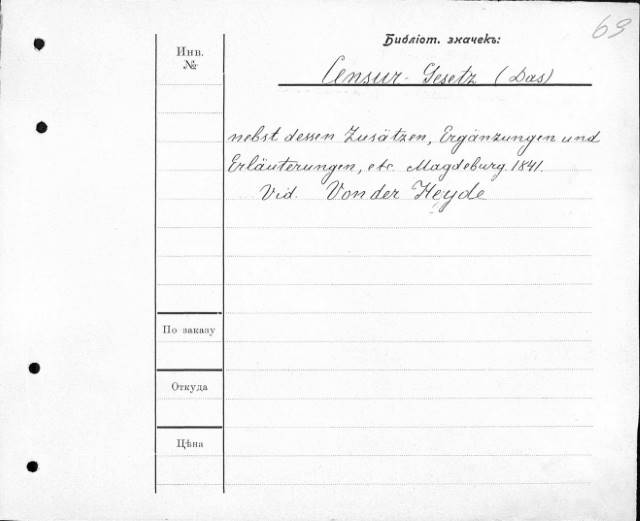 63
Библіот. значекъ:
Инв.
№
Censur-Gesetz (Das)
nebst dessen Zusätzen, Ergänzungen und
Erläuterungen, etc. Magdeburg. 1841.
Vid. Von der Heyde
По заказу
Откуда
Цѣна